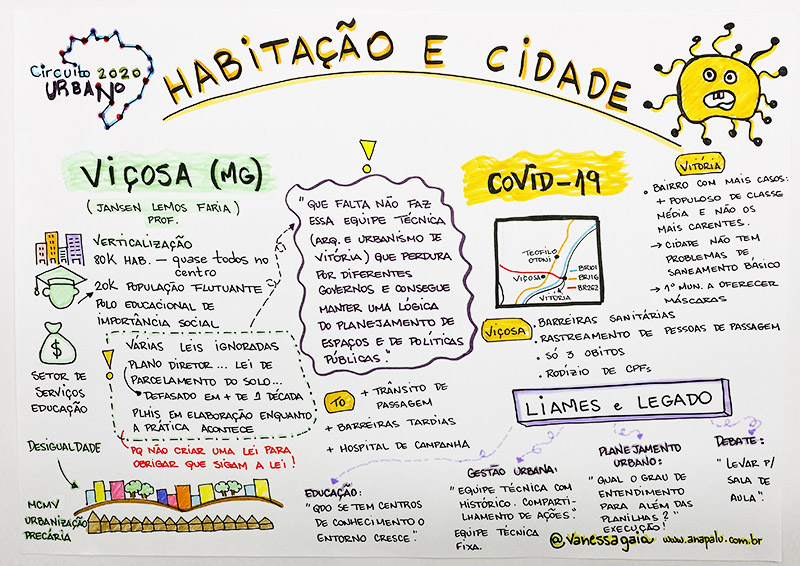 Circuito 2020
URBANO
HABITAÇÃO E CIDADE
VIÇOSA (MG)
(JANSEN LEMOS FARIA)
PROF.
VERTICALIZAÇÃO
80K HAB. — quase todos no
centro
20K POPULAÇÃO FLUTUANTE
POLO EDUCACIONAL DE
IMPORTÂNCIA SOCIAL
$
SETOR DE
SERVIÇOS
EDUCAÇÃO
VÁRIAS LEIS IGNORADAS
PLANO DIRETOR... LEI DE
PARCELAMENTO DO SOLO...
DEFASADO EM + DE 1 DÉCADA
PLHIS EM ELABORAÇÃO ENQUANTO
A PRÁTICA ACONTECE
PQ NÃO CRIAR UMA LEI PARA
OBRIGAR QUE SIGAM A LEI!
DESIGUALDADE
MCMV
URBANIZAÇÃO
PRECÁRIA
"QUE FALTA NÃO FAZ
ESSA EQUIPE TÉCNICA
(ARQ. E URBANISMO DE
VITÓRIA) QUE PERDURA
POR DIFERENTES
GOVERNOS E CONSEGUE
MANTER UMA LÓGICA
DO PLANEJAMENTO DE
ESPAÇOS E DE POLÍTICAS
PÚBLICAS."
COVID-19
TEOFILO
OTONI
VIÇOSA
VITORIA
BR101
BR116
BR262
VITÓRIA
• BAIRRO COM MAIS CASOS:
+ POPULOSO DE CLASSE
MÉDIA E NÃO OS
MAIS CARENTES.
→ CIDADE NÃO TEM
PROBLEMAS DE
SANEAMENTO BÁSICO
→ 1º MUN. A OFERECER
MÁSCARAS
VIÇOSA
• BARREIRAS SANITÁRIAS
• RASTREAMENTO DE PESSOAS DE PASSAGEM
• SÓ 3 OBITOS
• RODÍZIO DE CPFs
TO
+ TRÂNSITO DE
PASSAGEM
+ BARREIRAS TARDIAS
+ HOSPITAL DE CAMPANHA
LIAMES e LEGADO
EDUCAÇÃO:
"QDO SE TEM CENTROS
DE CONHECIMENTO O
ENTORNO CRESCE".
GESTÃO URBANA:
"EQUIPE TÉCNICA COM
HISTÓRICO. COMPARTI-
LHAMENTO DE AÇÕES".
EQUIPE TÉCNICA
FIXA.
PLANEJAMENTO
URBANO:
"QUAL O GRAU DE
ENTENDIMENTO
PARA ALÉM DAS
PLANILHAS?"
EXECUÇÃO!
DEBATE:
"LEVAR P/
SALA DE
AULA".
@vanessagaia www.anapalu.com.br